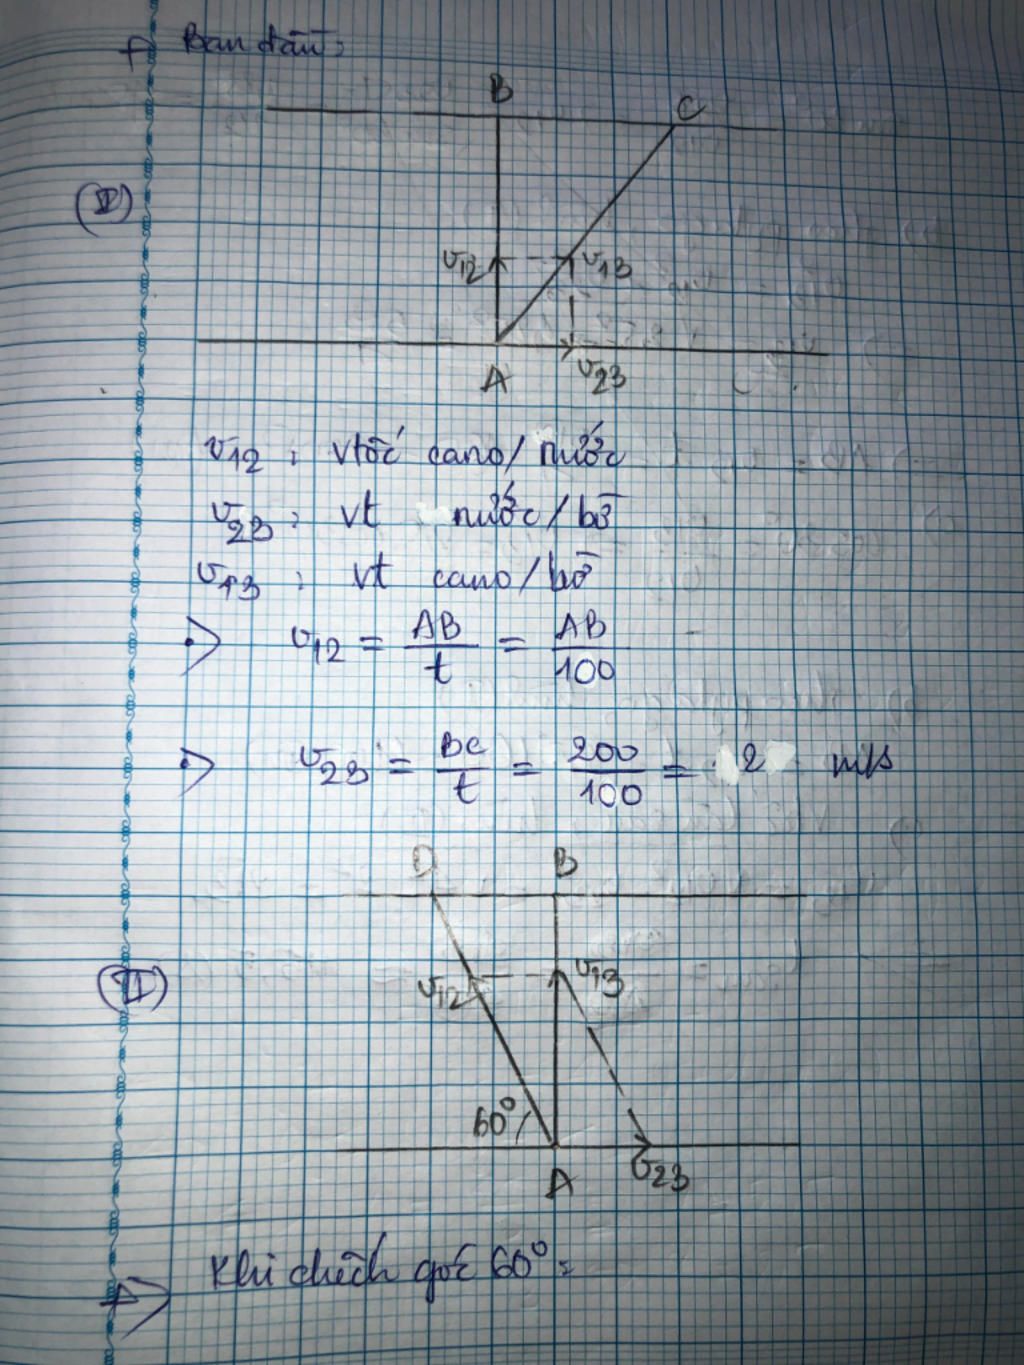 +) Ban đầu:
B
C
(I)
v12
v13
A
v23
v12 : vtốc cano/ nước
v23 : vt nước/bờ
v13 : vt cano/bờ
v12 = AB/t = AB/100
v23 = BC/t = 200/100 = 2 m/s
D
B
(II)
v12
v13
60°
A
v23
+) Khi chếch góc 60°: